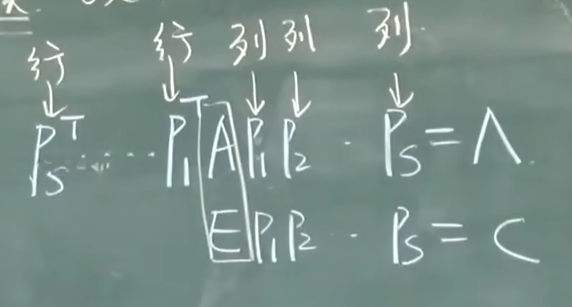 行 行 列 列 列
P_S^T ⋯ ⋯ P_1^T A P_1 P_2 ⋯ P_S = Λ
E P_1 P_2 ⋯ P_S = C